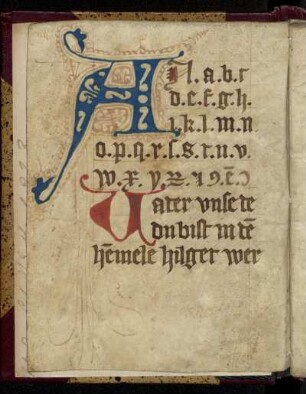 A A. a. b. c
d. e. f. g. h.
i. k. l. m. n
o. p. q. r. ſ. s. t. u. v.
w. x. y z. ꝛ 9. c̄. ꝯ
Uater vnſe te
du biſt in dē
hēmele hilget wer